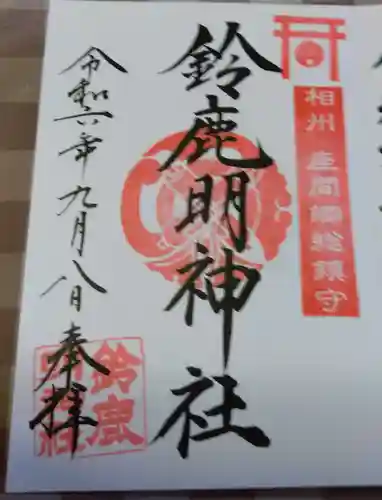 相州 座間郷総鎮守
鈴鹿明神社
令和六年九月八日 奉拝
鈴鹿